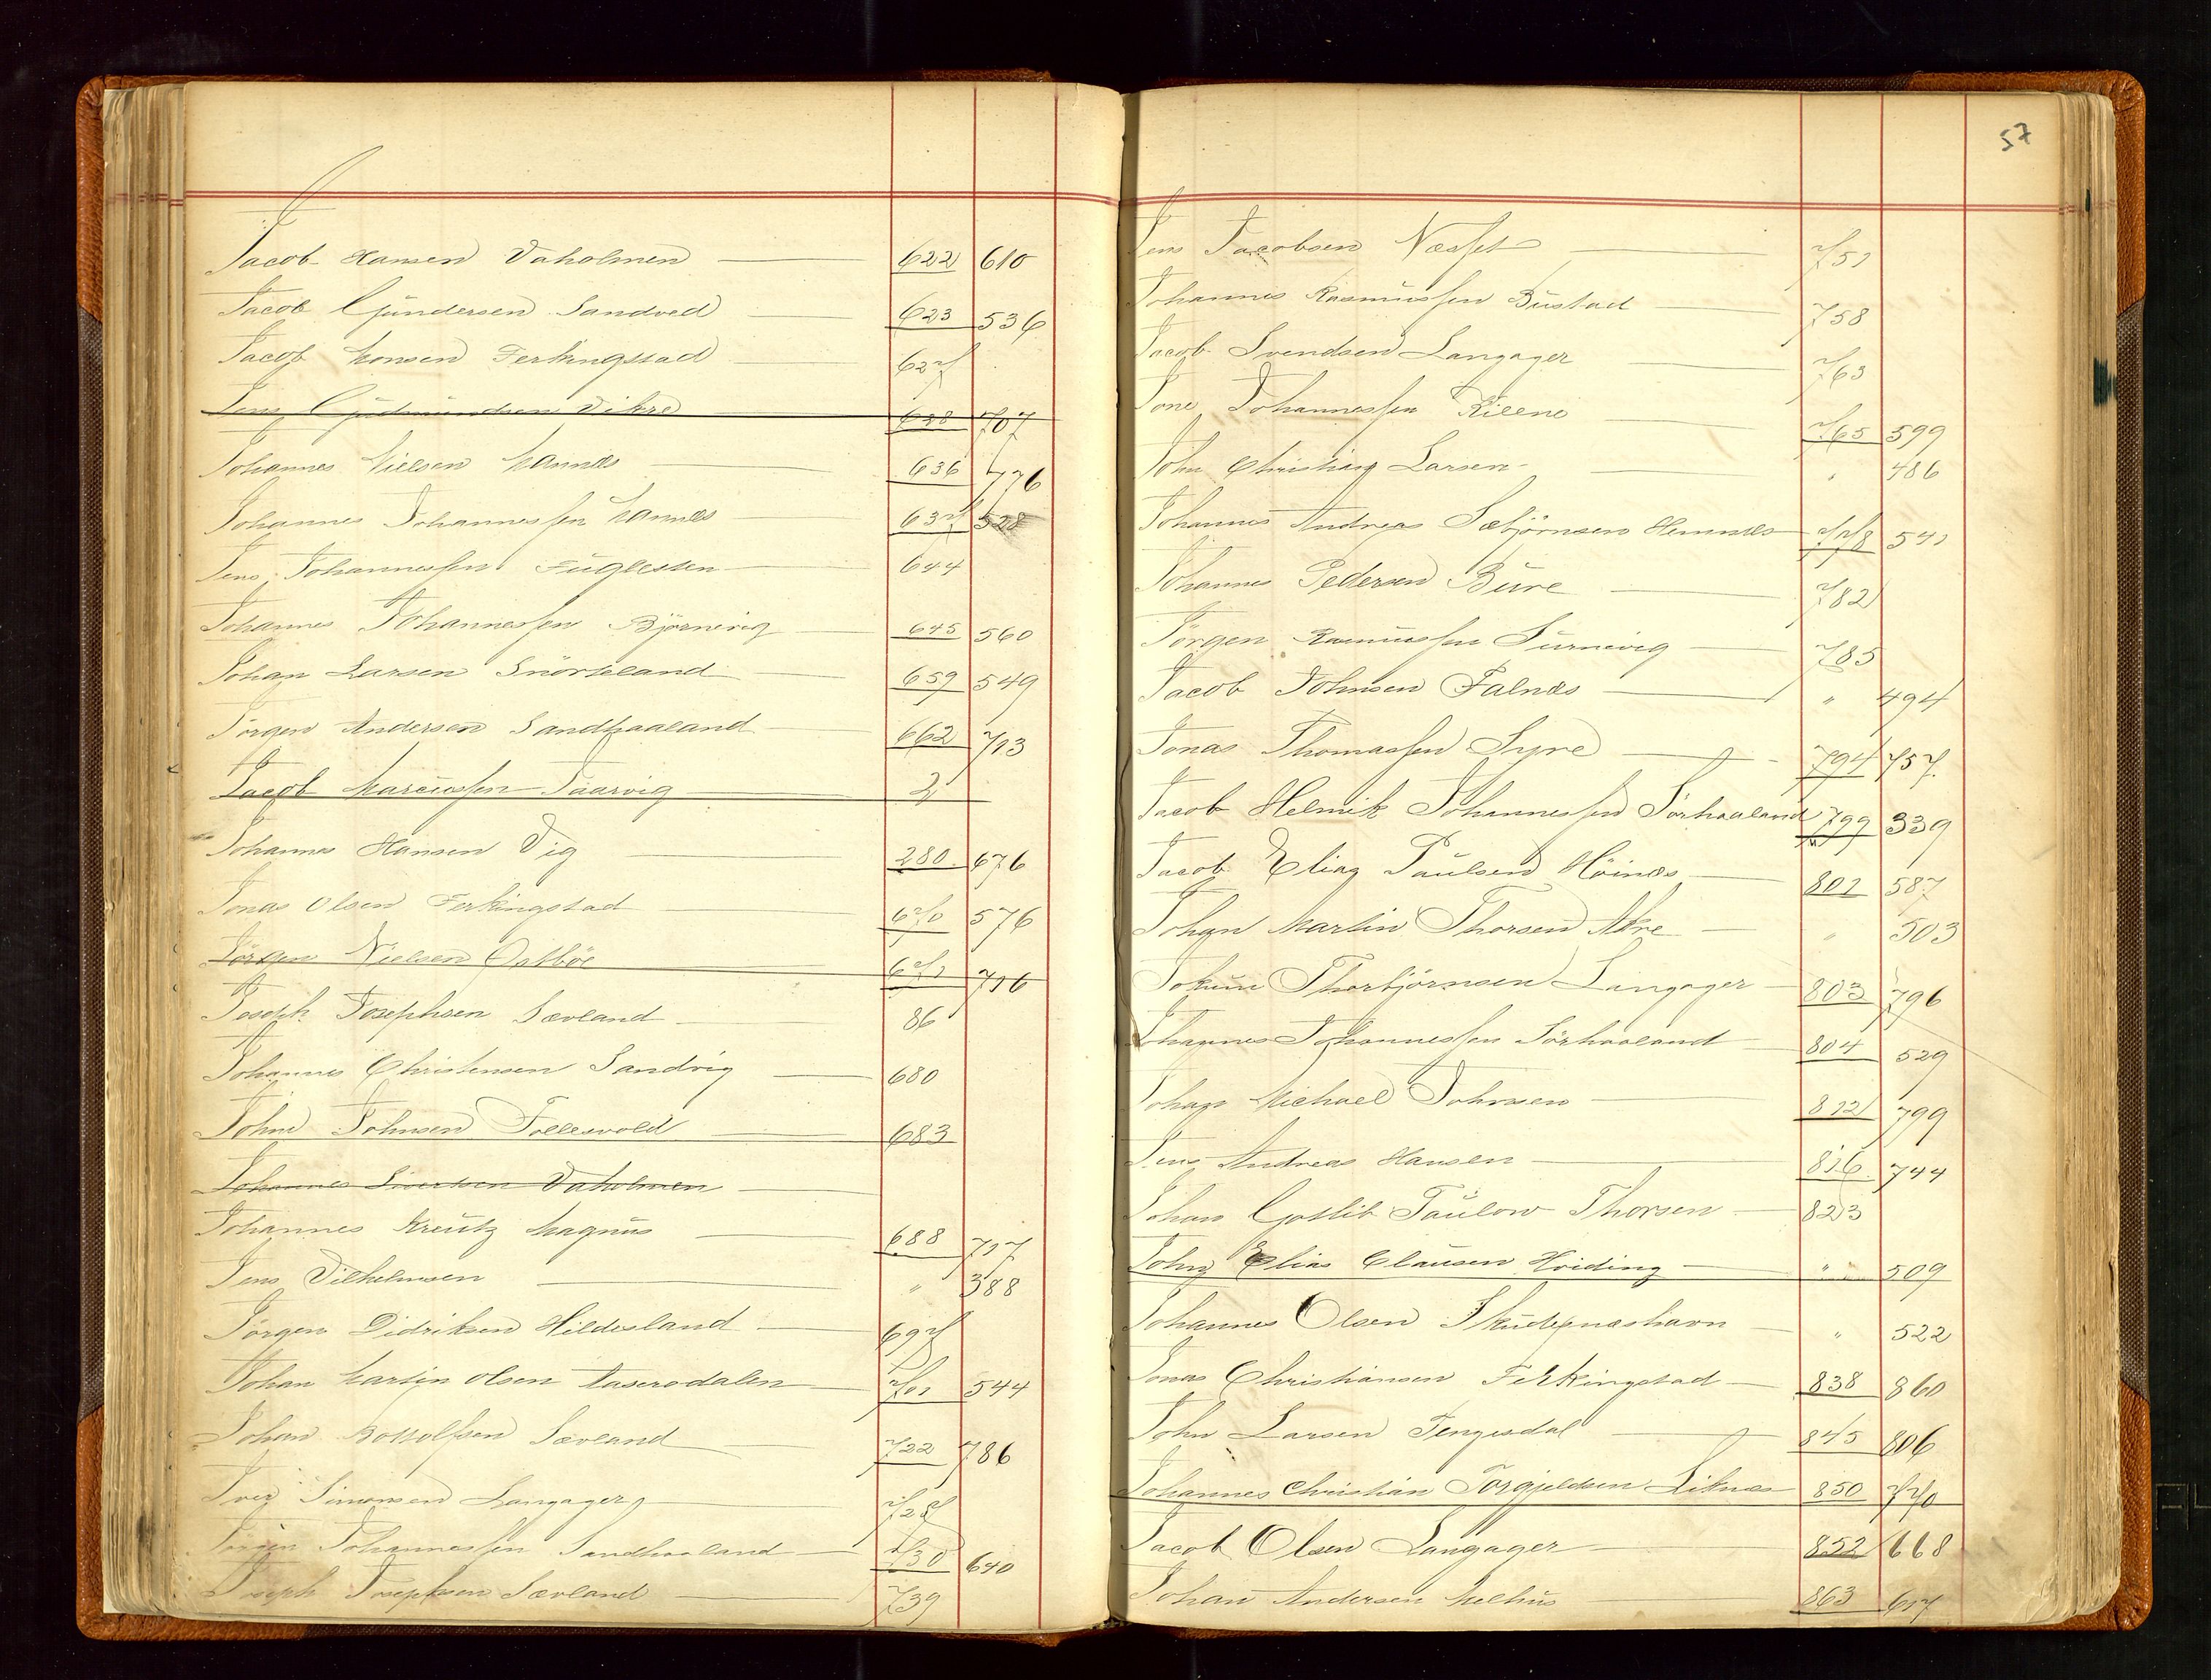 J
Jacob Hansen Vaholmen 622 610
Jacob Gundersen Sandved 623 536
Jacob Monsen Ferkingstad 627
Jens Gudmundsen Vikre 628 707
Johannes Nielsen Hannæs 636 776
Johannes Johannessen Hannæs 637 528
Jens Johannessen Fuglesten 644
Johannes Johannessen Björnevig 645 560
Johan Larsen Snörteland 659 549
Jörgen Andersen Sandhaaland 662 713
Jacob Marcussen Taarvig 2
Johannes Hansen Vig 280 676
Jonas Olsen Ferkingstad 670 576
Jörgen Nielsen Østbøe 671 716
Joseph Josephsen Sævland 86
Johannes Christensen Sandvig 680
John Johnsen Follesvold 683
Johannes Sivertsen Vaholmen
Johannes Kreutz Magnus 688 717
Jens Vilhelmsen " 388
Jörgen Didriksen Hildesland 697
Johan Martin Olsen Aaserodalen 701 544
Johan Bottolfsen Sævland 722 786
Iver Simonsen Langager 727
Jörgen Johannessen Sandhaaland 730 640
Joseph Josephsen Sævland 739
57
Jens Jacobsen Næsset 751
Johannes Rasmussen Bustad 758
Jacob Svendsen Langager 763
Jone Johannessen Kilene 765 599
John Christian Larsen " 486
Johannes Andreas Sæbjörnsen Hemnæs 778 541
Johannes Pedersen Bure 782
Jörgen Rasmussen Surnevig 785
Jacob Johnsen Falnæs " 494
Jonas Thomassen Syre 794 757
Jacob Helmik Johannessen Sörhaaland 799 339
Jacob Elias Paulsen Höinæs 801 587
Johan Martin Thorsen Akre " 503
Jokum Thorbjörnsen Langager 803 796
Johannes Johannessen Sörhaaland 804 529
Johan Michael Johnsen 812 799
Jens Andreas Hansen 816 744
Johan Gotlib Paulow Thorsen 823
John Elias Clausen Hviding " 509
Johannes Olsen Skudesnæshavn " 522
Jonas Christiansen Ferkingstad 838 860
John Larsen Tengesdal 845 806
Johannes Christian Torgjeldsen Liknæs 850 770
Jacob Olsen Langager 852 668
Johan Andersen Melhus 863 617